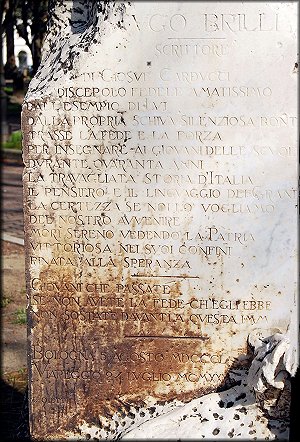 UGO BRILLI
SCRITTORE
DI GIOSUÈ CARDUCCI
DISCEPOLO FEDELE AMATISSIMO
DALL'ESEMPIO DI LUI
DALLA PROPRIA SCHIVA SILENZIOSA BONT
TRASSE LA FEDE E LA FORZA
PER INSEGNARE AI GIOVANI DELLE SCUOL
DURANTE QUARANTA ANNI
LA TRAVAGLIATA STORIA D'ITALIA
IL PENSIERO E IL LINGUAGGIO DEI GRANI
LA CERTEZZA SE NOI LO VOGLIAMO
DEL NOSTRO AVVENIRE
MORÌ SERENO VEDENDO LA PATRIA
VITTORIOSA NEI SUOI CONFINI
RINATA ALLA SPERANZA
GIOVANI CHE PASSATE
SE NON AVETE LA FEDE CH'EGLI EBBE
NON SOSTATE DAVANTI A QUESTA IMM
BOLOGNA AGOSTO
VIAREGGIO LUGLIO